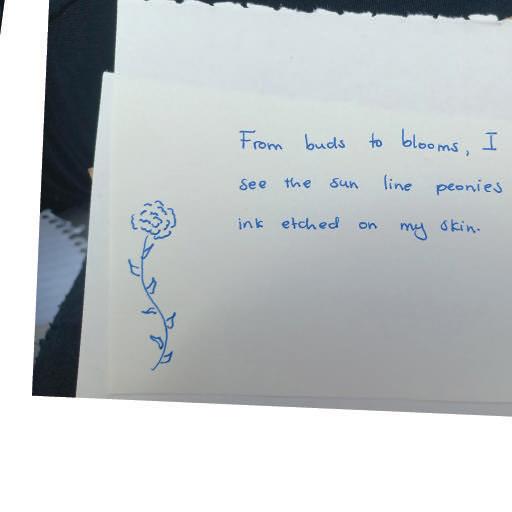 From buds to blooms, I
see the sun line peonies
ink etched on my skin.